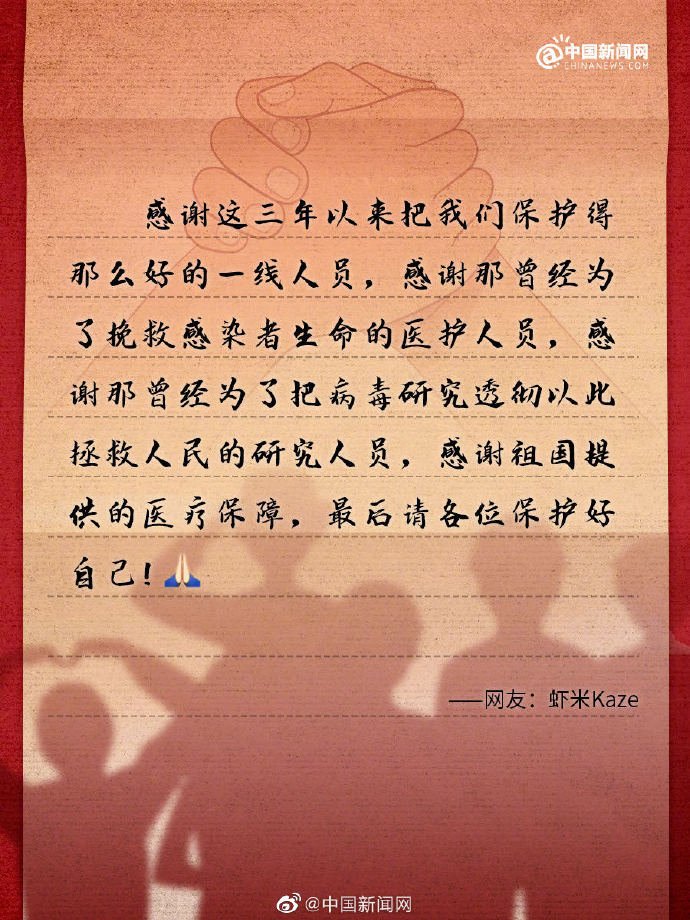 中国新闻网
CHINANEWS.COM
感谢这三年以来把我们保护得
那么好的一线人员，感谢那曾经为
了挽救感染者生命的医护人员，感
谢那曾经为了把病毒研究透彻以此
拯救人民的研究人员，感谢祖国提
供的医疗保障，最后请各位保护好
自己！🙏
——网友：虾米Kaze
@中国新闻网